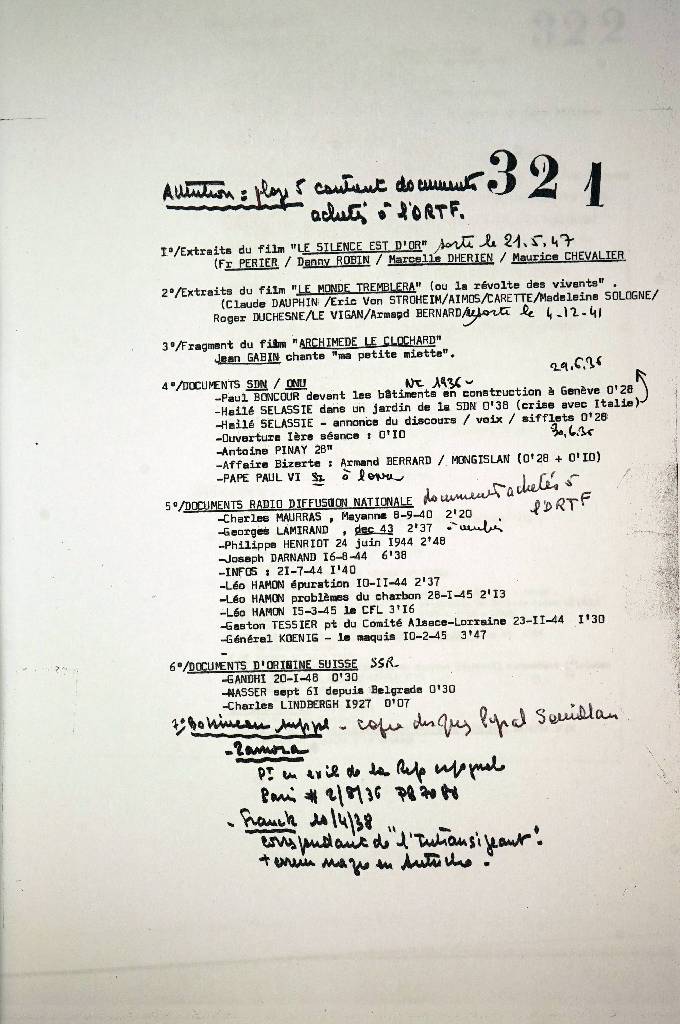 322
321
Attention : plage 5 contient documents
achetés à l'ORTF.
1°/Extraits du film "LE SILENCE EST D'OR" sorti le 21.5.47
(Fr PERIER / Danny ROBIN / Marcelle DHERIEN / Maurice CHEVALIER
2°/Extraits du film "LE MONDE TREMBLERA" (ou la révolte des vivants" .
(Claude DAUPHIN /Eric Von STROHEIM/AIMOS/CARETTE/Madeleine SOLOGNE/
Roger DUCHESNE/LE VIGAN/Armand BERNARD/ le 4-12-41
3°/Fragment du film "ARCHIMEDE LE CLOCHARD"
Jean GABIN chante "ma petite miette".
29.6.36
4°/DOCUMENTS SDN / ONU
1936-
-Paul BONCOUR devant les bâtiments en construction à Genève 0'28
-Hailé SELASSIE dans un jardin de la SDN 0'38 (crise avec Italie)
-Hailé SELASSIE - annonce du discours / voix / sifflets 0'28
-Ouverture Ière séance : 0'I0
30.6.36
-Antoine PINAY 28"
-Affaire Bizerte : Armand BERRARD / MONGISLAN (0'28 + 0'I0)
-PAPE PAUL VI à
5°/DOCUMENTS RADIO DIFFUSION NATIONALE documents achetés à
l'ORTF
-Charles MAURRAS , Mayanne 8-9-40 2'20
-Georges LAMIRAND , dec 43 2'37
-Philippe HENRIOT 24 juin I944 2'48
-Joseph DARNAND I6-8-44 6'38
-INFOS : 2I-7-44 I'40
-Léo HAMON épuration I0-II-44 2'37
-Léo HAMON problèmes du charbon 28-I-45 2'I3
-Léo HAMON I5-3-45 le CFL 3'I6
-Gaston TESSIER pt du Comité Alsace-Lorraine 23-II-44 I'30
-Général KOENIG - le maquis I0-2-45 3'47
-
6°/DOCUMENTS D'ORIGINE SUISSE SSR
-GANDHI 20-I-48 0'30
-NASSER sept 6I depuis Belgrade 0'30
-Charles LINDBERGH I927 0'07
7° suppl - copie disques
-Zamora
Pt en exil de la Rep espagnole
Paris 2/8/36
- Franck 10/4/38
correspondant de "l'Intransigeant".
en Autriche .